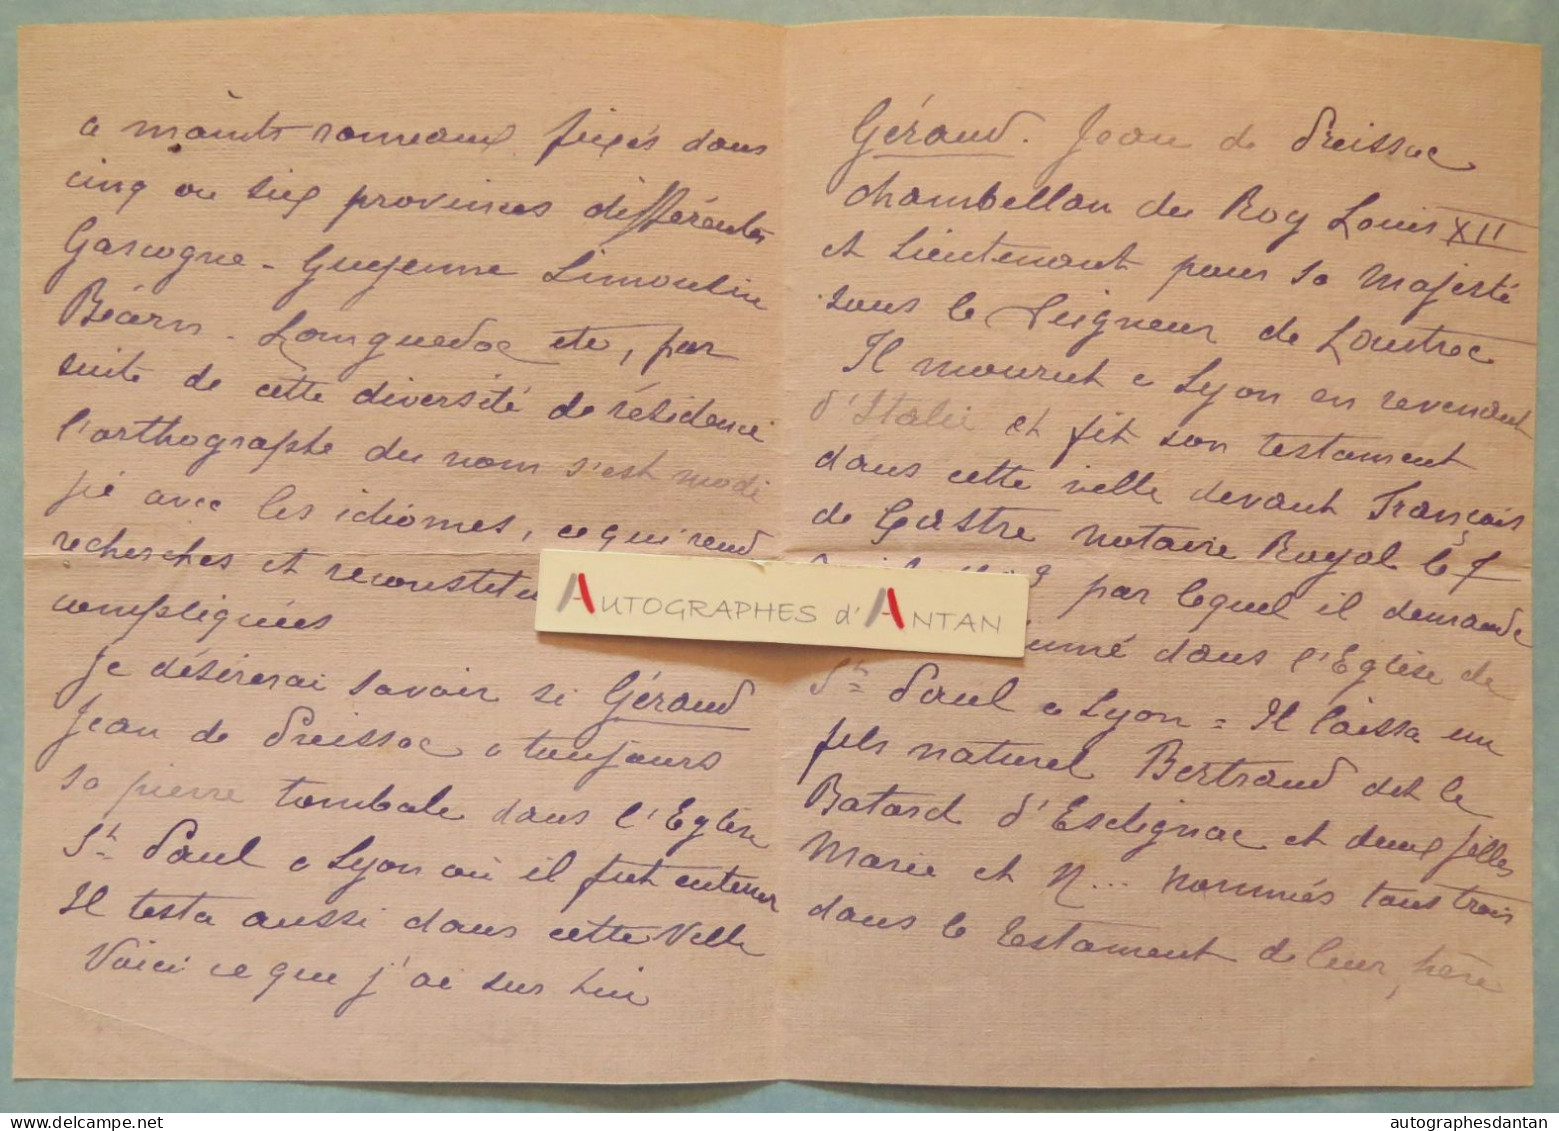 a maints rameaux fixés dans
cinq ou six provinces différentes
Gascogne - Guyenne Limousin
Béarn - Languedoc etc, par
suite de cette diversité de résidence
l'orthographe du nom s'est modi
fié avec les idiomes, ce qui rend
recherches et reconstitu
compliquées
Je désirerai savoir si Géraud
Jean de Preissac a toujours
sa pierre tombale dans l'Eglise
St Paul a Lyon où il fut enterrer
Il testa aussi dans cette Ville
Voici ce que j'ai sur lui
Géraud. Jean de Preissac
chambellan du Roy Louis XII
et Lieutenant pour sa Majesté
sous le Seigneur de Lautrec
Il mourut a Lyon en revenant
d'Italie et fit son testament
dans cette ville devant Français
de Castre notaire Royal le 7
9 par lequel il demande
umé dans l'Eglise de
St Paul a Lyon = Il laissa un
fils naturel Bertrand dit le
Batard d'Esclignac et deux filles
Marie et N... nommés tous trois
dans le testament de leur père
AUTOGRAPHES d'ANTAN
autographesdantan